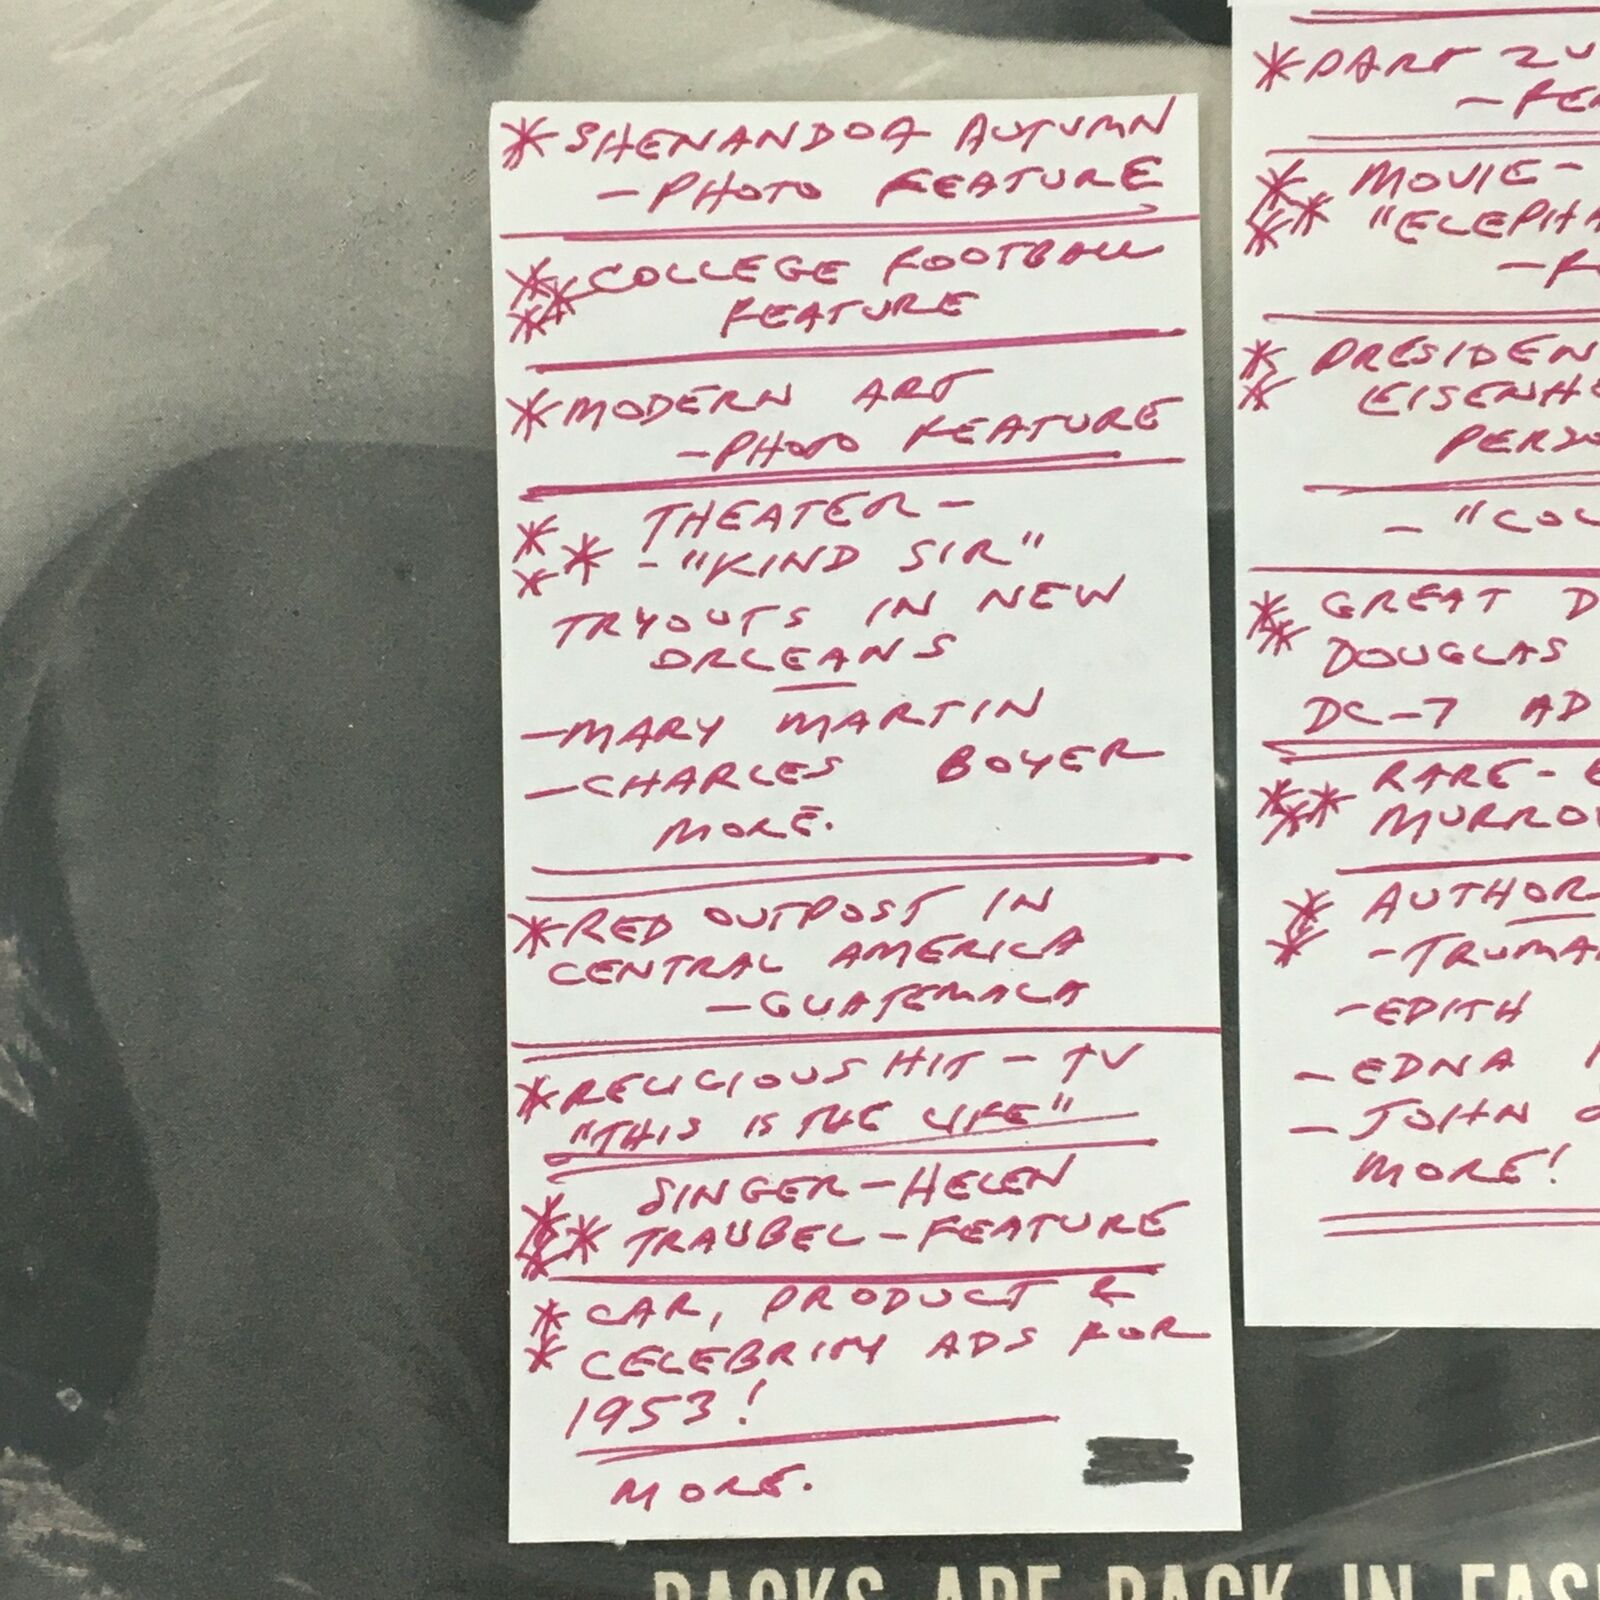 * SHENANDOA AUTUMN
- PHOTO FEATURE
*** COLLEGE FOOTBALL
FEATURE
* MODERN ART
- PHOTO FEATURE
*** THEATER -
- "KIND SIR"
TRYOUTS IN NEW
ORLEANS
- MARY MARTIN
- CHARLES BOYER
MORE.
* RED OUTPOST IN
CENTRAL AMERICA
- GUATEMALA
* RELIGIOUS HIT - TV
"THIS IS THE LIFE"
*** SINGER - HELEN
TRAUBEL - FEATURE
** CAR, PRODUCT &
CELEBRITY ADS FOR
1953!
MORE.
* PART 2
*** MOVIE -
"ELEPHA
** PRESIDEN
EISENHO
PERSO
- "COL
** GREAT D
DOUGLAS
DC-7 AD
*** RARE - E
MURROW
** AUTHOR
- TRUMA
- EDITH
- EDNA
- JOHN O
MORE!
BACKS ARE BACK IN FAS